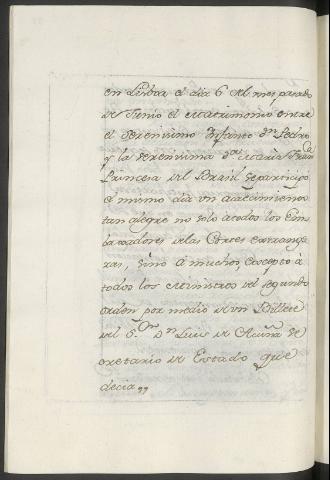 en Lisboa el dia 6 del mes pasado
de Junio el Matrimonio entre
el Serenisimo Infante Dn. Pedro
y la Serenisima Da. Maria Fran.ca
Princesa del Brasil se participó
el mismo dia un acaecimiento
tan alegre no solo a todos los Em
baxadores de las Cortes extrange
ras, sino á muchos, excepto á
todos los Ministros del segundo
orden por medio de un Billete
del S.or Dn. Luis de Acuña Se
cretario de Estado que
decia,,